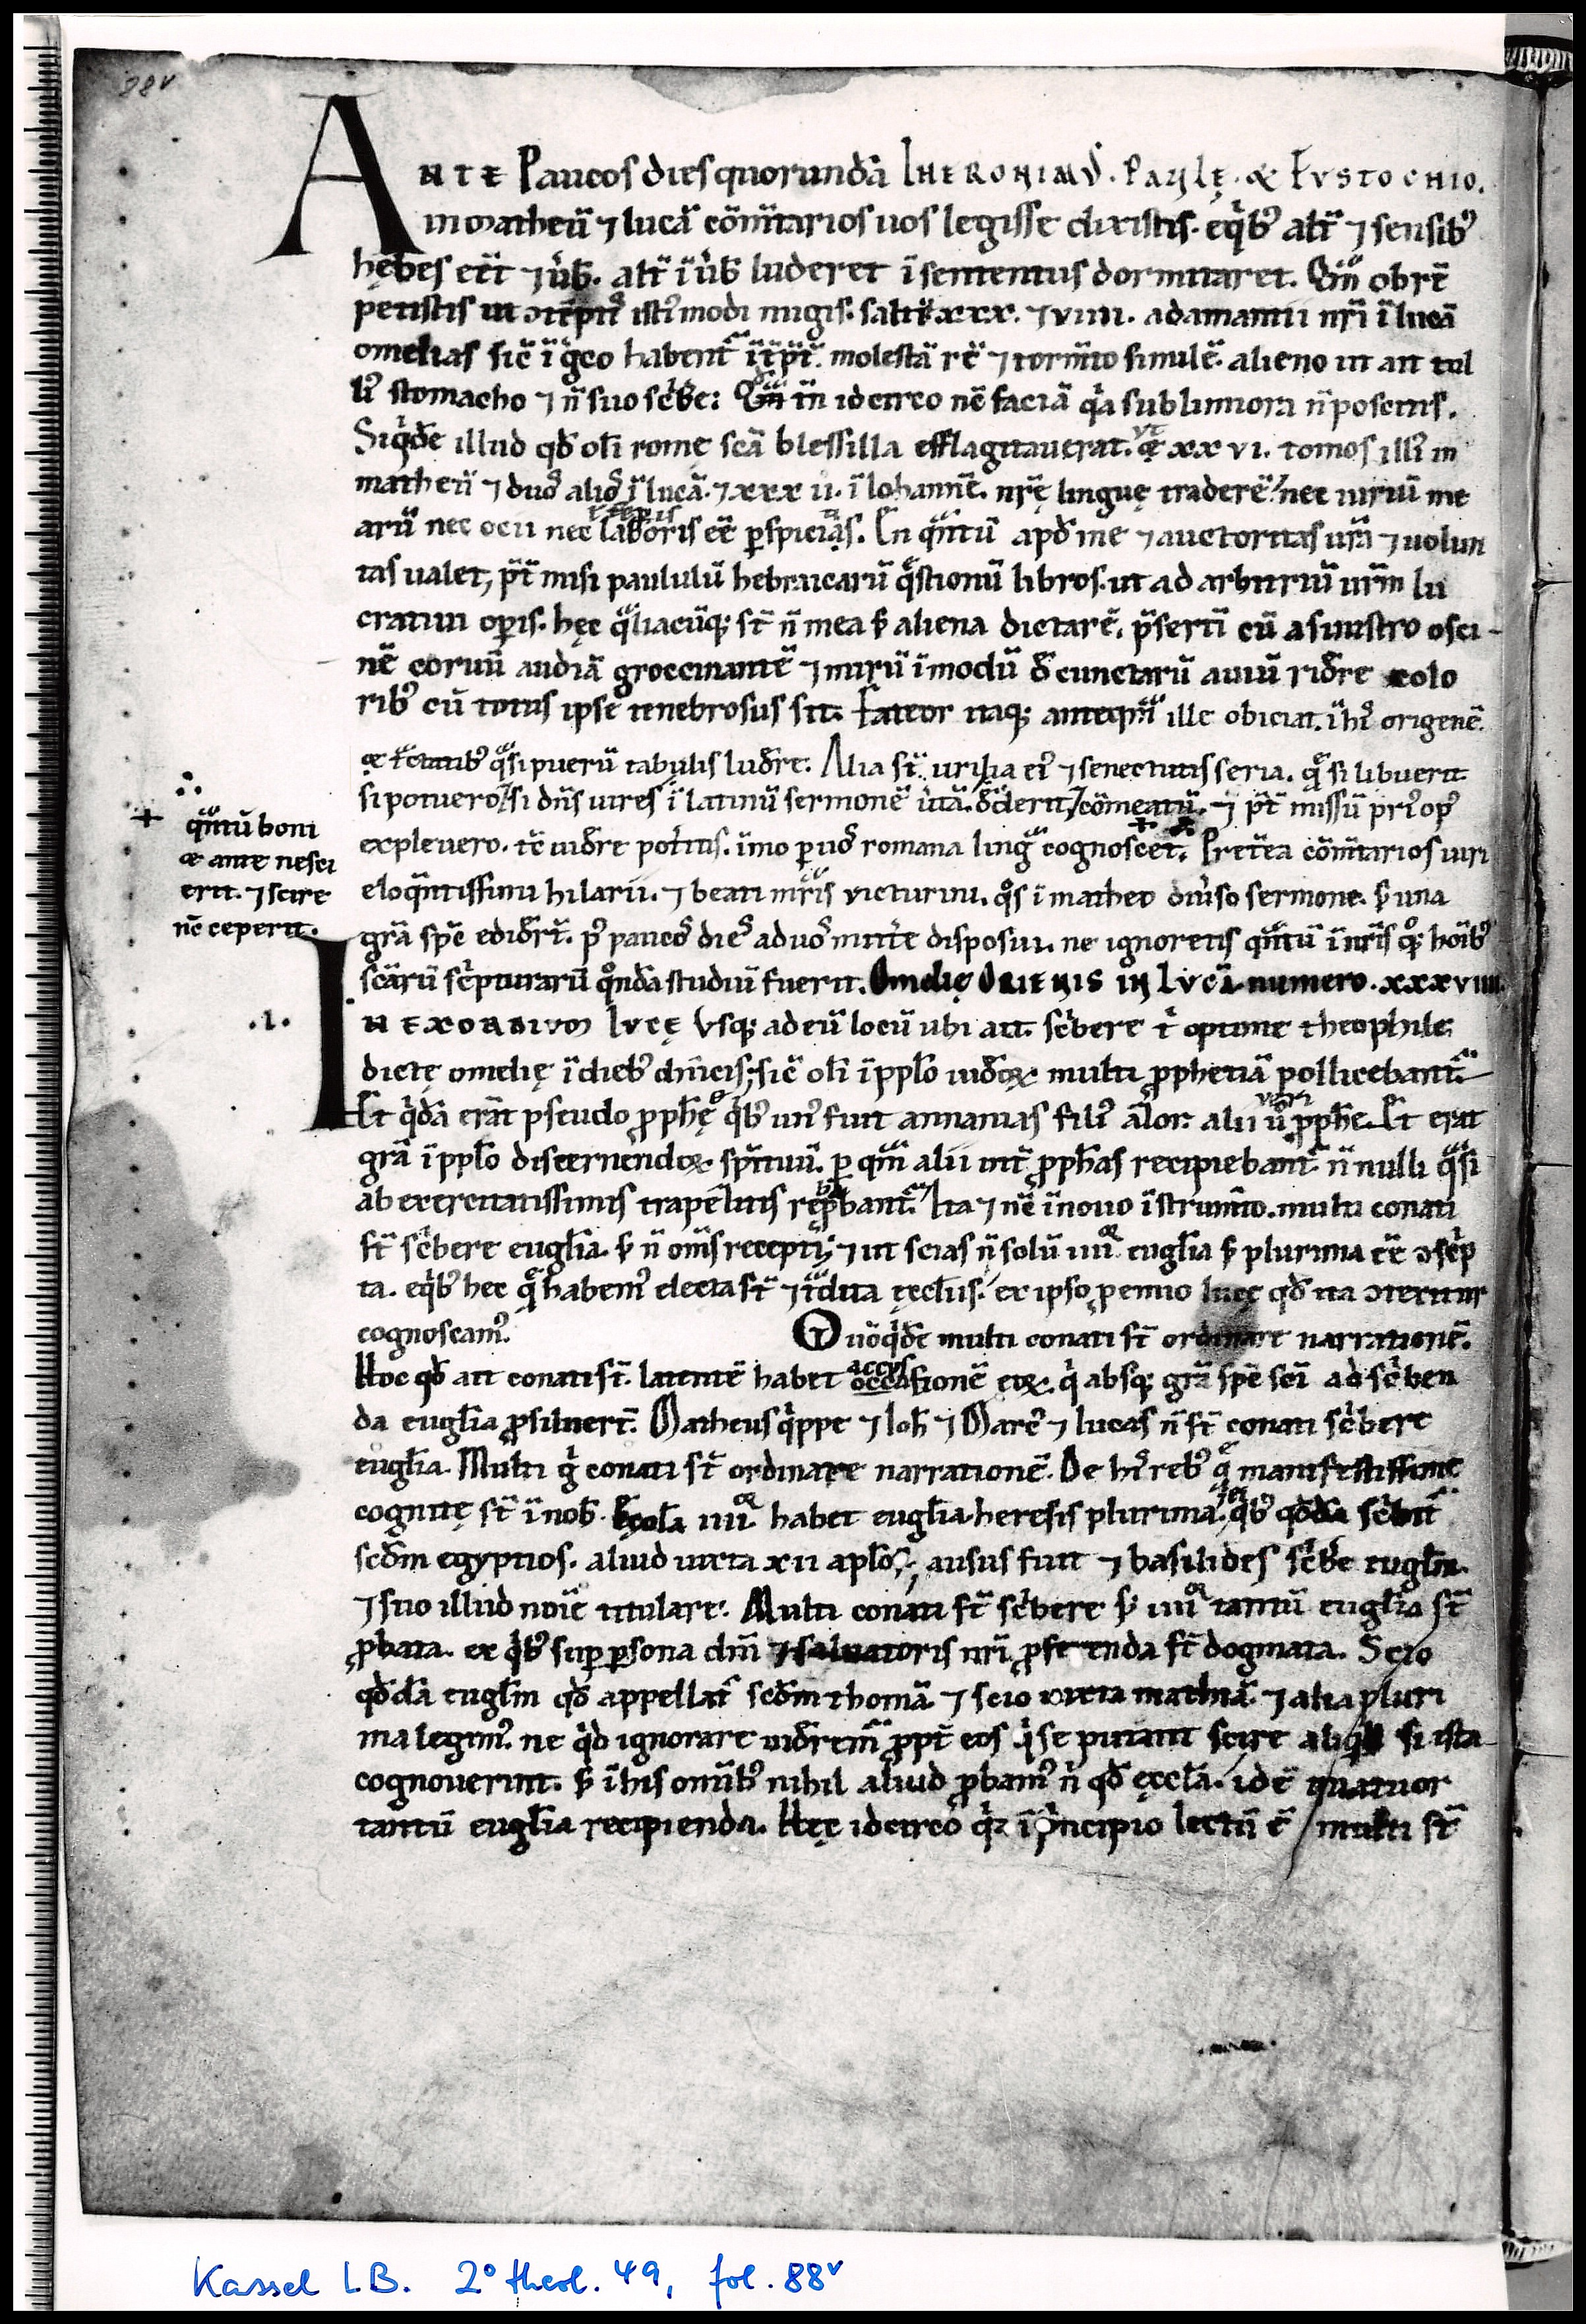 88v
Ante Paucos dies quorundā Iheronimus. Paulę. & Eustochio.
in matheū ⁊ lucā cōm̄tarios uos legisse dixistis. eqͥbꝰ alt̄ ⁊ sensibꝰ
hębes eēt ⁊ uͥb. alt̄ ī uͥb luderet ī sententiis dormitaret. Qm̄ obrē
petistis ut ɔtēptis istiꝰmodi nugis. saltē xxx. ⁊ viiii. adamantii nr̄i ī lucā
omelias sic̄ ī gͤco habent̄ īt̄p̄t̄. molestā rē ⁊ torm̄to similē. alieno ut ait tul
liꝰ stomacho ⁊ n̄ suo scͥbe: Qm̄ tn̄ idcirco nē faciā qͥa sublimiora n̄ poscitis.
Siqͥdē illud qd̄ oli rome sc̄a blessilla efflagitauerat. ut ę xxvi. tomos illiꝰ in
matheū ⁊ duos alios ī lucā. ⁊ xxx ii. ī Iohannē. nrę linguę traderē / nec uiriū me
arū nec ocii nec laboris eē ꝑspicias. En qͣntū apd̄ me ⁊ auctoritas ur̄a ⁊ uolun
tas ualet, p̄t̄misi paululū hebraicarū qͤstionū libros. ut ad arbitriū ur̄m lu
cratiui oꝑis. hęc qͣliacūqꝫ st̄ n̄ mea s; aliena dictarē. p̄serti cū a sinistro osci-
nē coruū audiā groccinantē ⁊ mirū īmodū d̄ cunctarū auiū ridr̄e colo
ribꝰ cū totus ipse tenebrosus sit. Fateor itaqꝫ anteqͣm ille obiciat. ī hiꝰ origenē
ę t̄ctatibꝰ qͣsi puerū tabulis ludr̄e. Alia st̄ uirilia eiꝰ ⁊ senectutis seria. qͤ si libuerit
si potuero / si dn̄s uires ī latinū sermonē uͥtā. d̄derit / cōmeatū. ⁊ p̄t̄missū pͥꝰopꝰ
expleuero. tc̄ uidr̄e potͥtis. īmo ꝑ uos romana lingͣ cognoscet. Pretēa cōm̄tarios uiri
+ qͣntū boni
ę ante nesci
erit. ⁊ scire
nc̄ ceperit.
eloqͣntissimi hilarii. ⁊ beati mr̄is victurini. qͦs ī matheo diuͥso sermone. s; una
gr̄a spc̄ edidr̄t. pꝰ paucos dies ad uos mitt̄e disposui. ne ignoretis qͣntū ī nr̄is qͦqꝫ hoībꝰ
scārū scͥpturarū qͦndā studiū fuerit. Omelię Origenis in Lucā. numero. xxxviiii.
.I.
In exordivm Lvcę Vsqꝫ ad eū locū ubi ait. scͥbere tͥ optime theophile.
dictę omelię ī diebꝰ dn̄icis; sic̄ oli ī pplo iudeoꝝ multi ꝓphetiā pollicebant̄.
Et qͥdā erāt pseudo ꝓphę qͥbꝰ unꝰ fuit annanias filiꝰ ālor. alii uͦ ꝓphē. Et erat
gr̄a ī pplo discernendoꝝ spr̄ituū. ꝑ qͣm alii int̄ ꝓphas recipiebant̄. n̄nulli qͣsi
ab exercitatissimis trapezitis repꝓbant̄. Ita ⁊ nc̄ ī nouo īstrumīto. multi conati
st̄ scͥbere euglia. s; n̄ om̄s recepti; ⁊ ut scias n̄ solū iiiiͦʳ euglia s; plurima eē ɔscͥp
ta. eqͥbꝰ hec qͤ habemꝰ electa st̄ ⁊ t̄dita ęcclīis. ex ipso ꝓemio lucę qd̄ ita ɔtexitur
cognoscamꝰ. Quōqͥdē multi conati st̄ ordinare narrationē.
Hoc qd̄ ait conati st̄. latentē habet accusationē eoꝝ. qͥ absqꝫ gr̄a spc̄ sc̄i ad scͥben
da euglia ꝓsilueŕt̄. Matheus qͥppe ⁊ Ioh̄ ⁊ Marcꝰ ⁊ lucas n̄ st̄ conati scͥbere
euglia. Multi gͥ conati st̄ ordinare narrationē. De hiꝰ rebꝰ qͤ manifestissime
cognitę st̄ ī nob̄. Eccla iiiiͦʳ habet euglia. heresis plurima. ex qͥbꝰ qd̄dā scͥbit̄
scd̄m egyptios. aliud iuxta xii aplos; ausus fuit ⁊ basilides scͥbe euglm.
⁊ suo illud noīe titulare. Multi conati st̄ scͥbere s; iiiiͦʳ tantū euglia st̄
ꝓbata. ex qͥbꝰ suꝑ ꝑsona dn̄i ⁊ saluatoris nr̄i ꝓferenda st̄ dogmata. Scio
qd̄dā euglm qd̄ appellat̄ scd̄m thomā. ⁊ scio iuxta mathiā. ⁊ alia pluri
ma legimꝰ. ne qͥd ignorare uidr̄emꝰ ꝓpt̄ eos qͥ se putant scire aliqͥd si ista
cognouerint. s; ī his omībꝰ nihil aliud ꝓbamꝰ nͥ qd̄ ęccla. idē quatuor
tantū euglia recipienda. Hęc idcirco qͥꝫ ī pͥncipio lectū ē / multi st̄
Kassel L.B. 2° theol. 49, fol. 88v